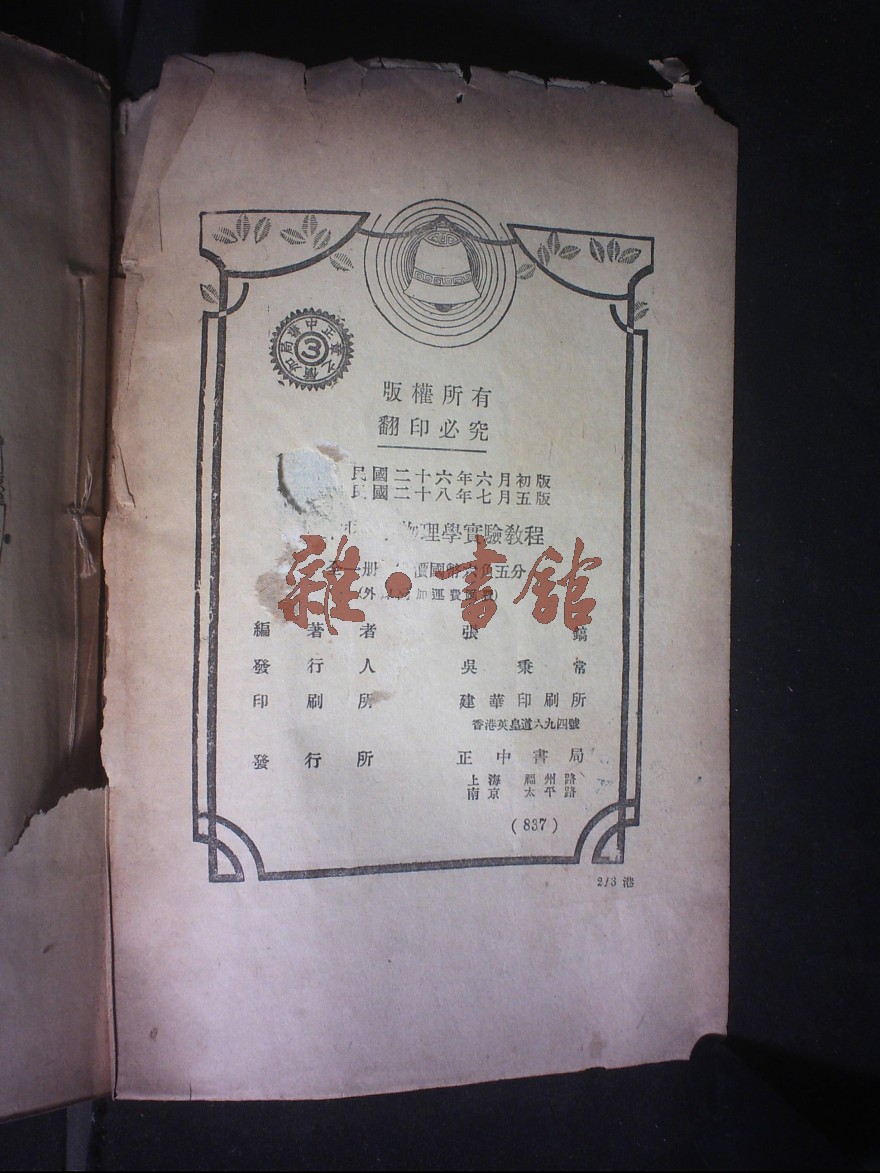 正中書局
③
版權所有
翻印必究
民國二十六年六月初版
民國二十八年七月五版
物理學實驗教程
全一册 價國幣六角五分
(外 加運費匯費)
雜·書館
編著者 張鎬
發行人 吳秉常
印刷所 建華印刷所
香港英皇道六九四號
發行所 正中書局
上海 福州路
南京 太平路
(837)
2/3 港